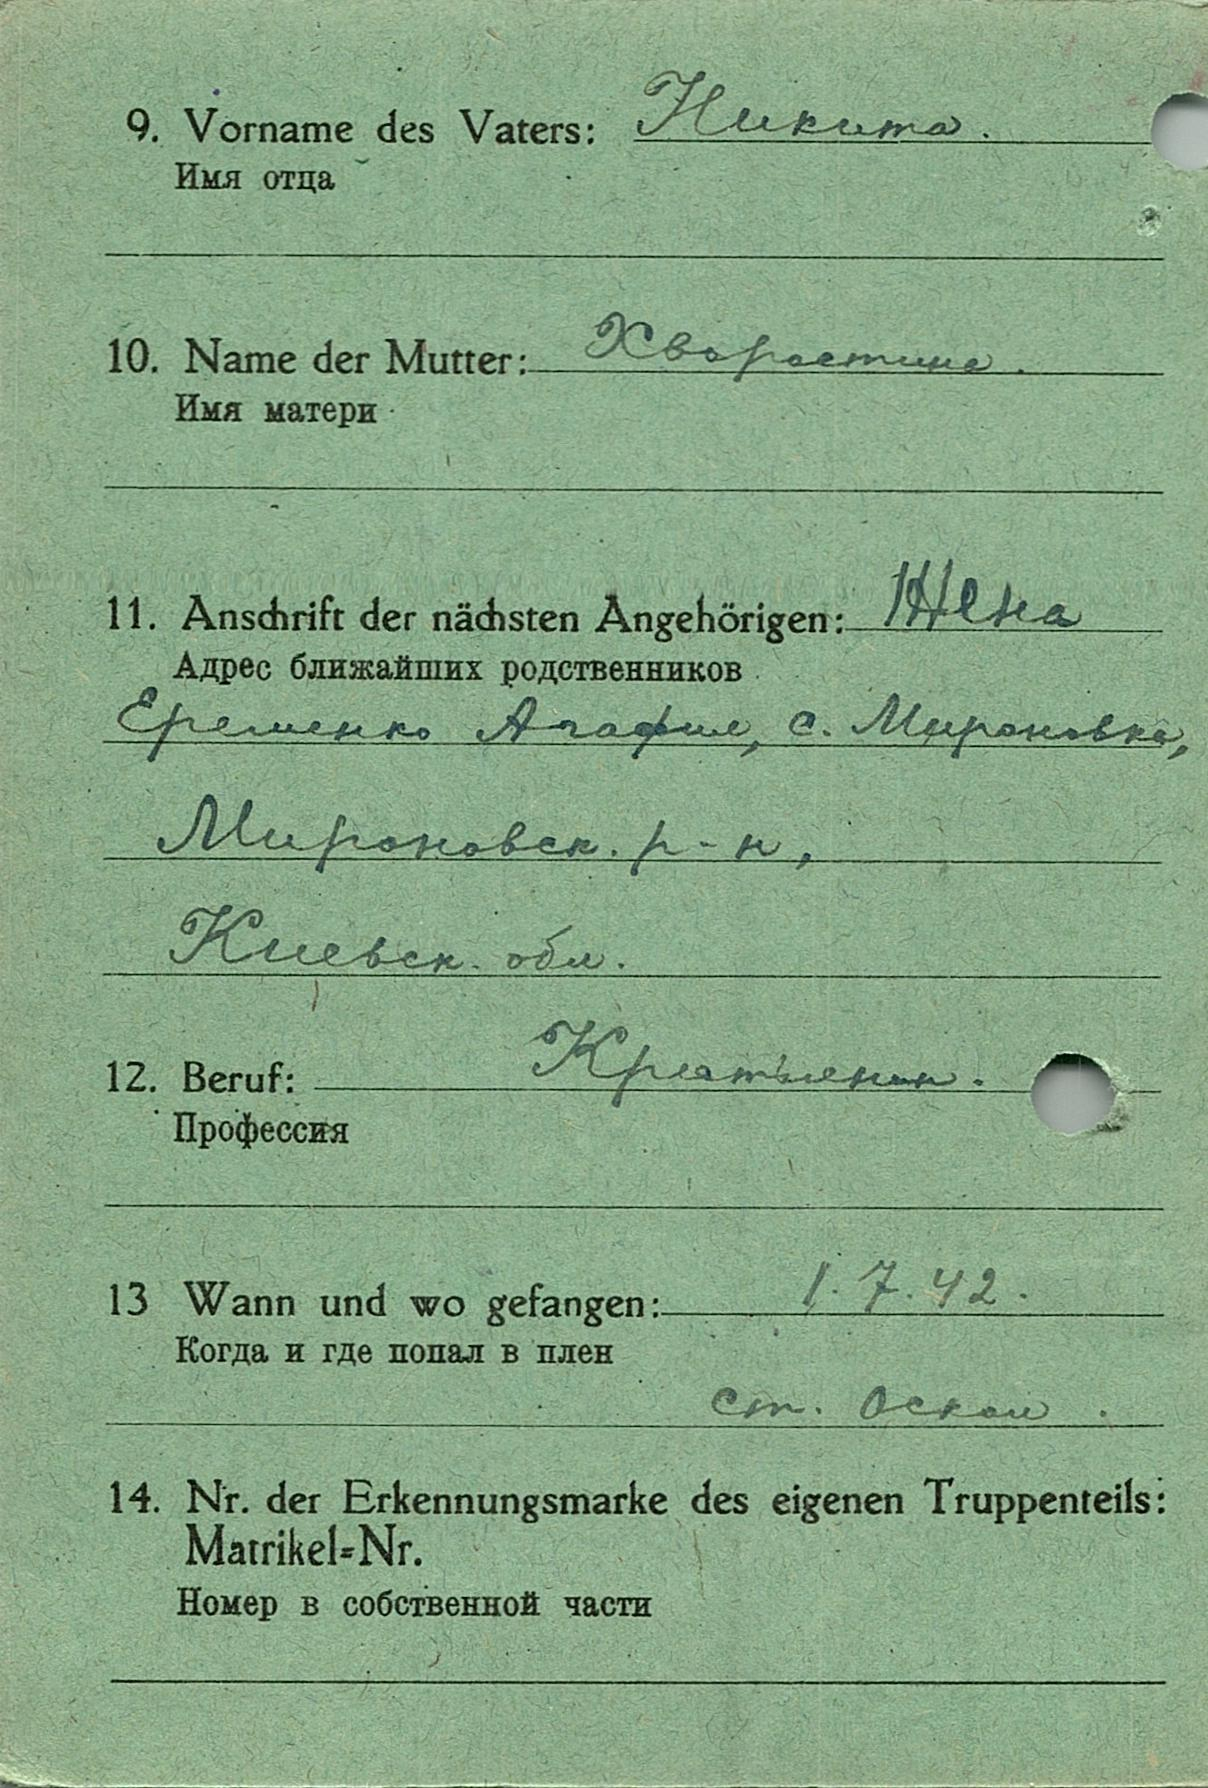 9. Vorname des Vaters: Никита.
Имя отца
10. Name der Mutter: Хворостина.
Имя матери
11. Anschrift der nächsten Angehörigen: Жена
Адрес ближайших родственников
Еременко Агафия, с. Мироновка,
Мироновск. р-н,
Киевск. обл.
12. Beruf: Крестьянин.
Профессия
13 Wann und wo gefangen: 1.7.42.
Когда и где попал в плен
ст. Оскол.
14. Nr. der Erkennungsmarke des eigenen Truppenteils:
Matrikel-Nr.
Номер в собственной части